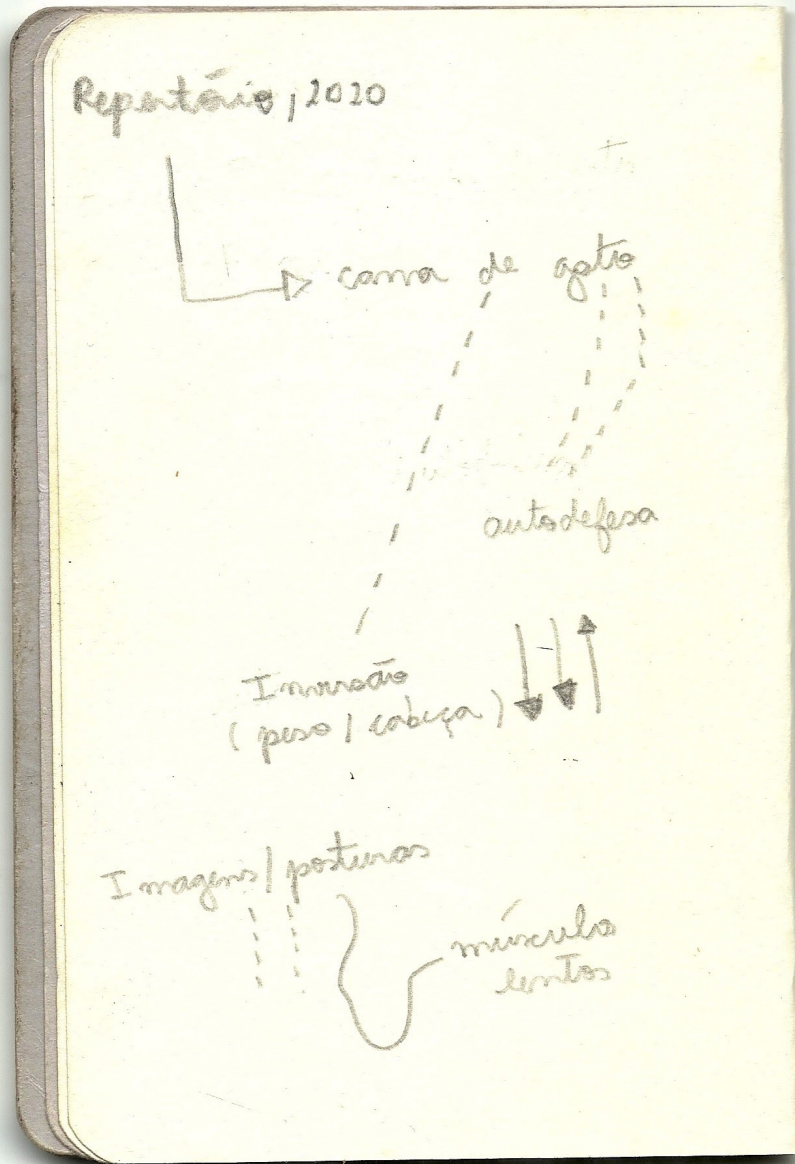 Repertório, 2020
cama de gato
autodefesa
Inversão
(peso / cabeça)
Imagens / posturas
músculo
lentos